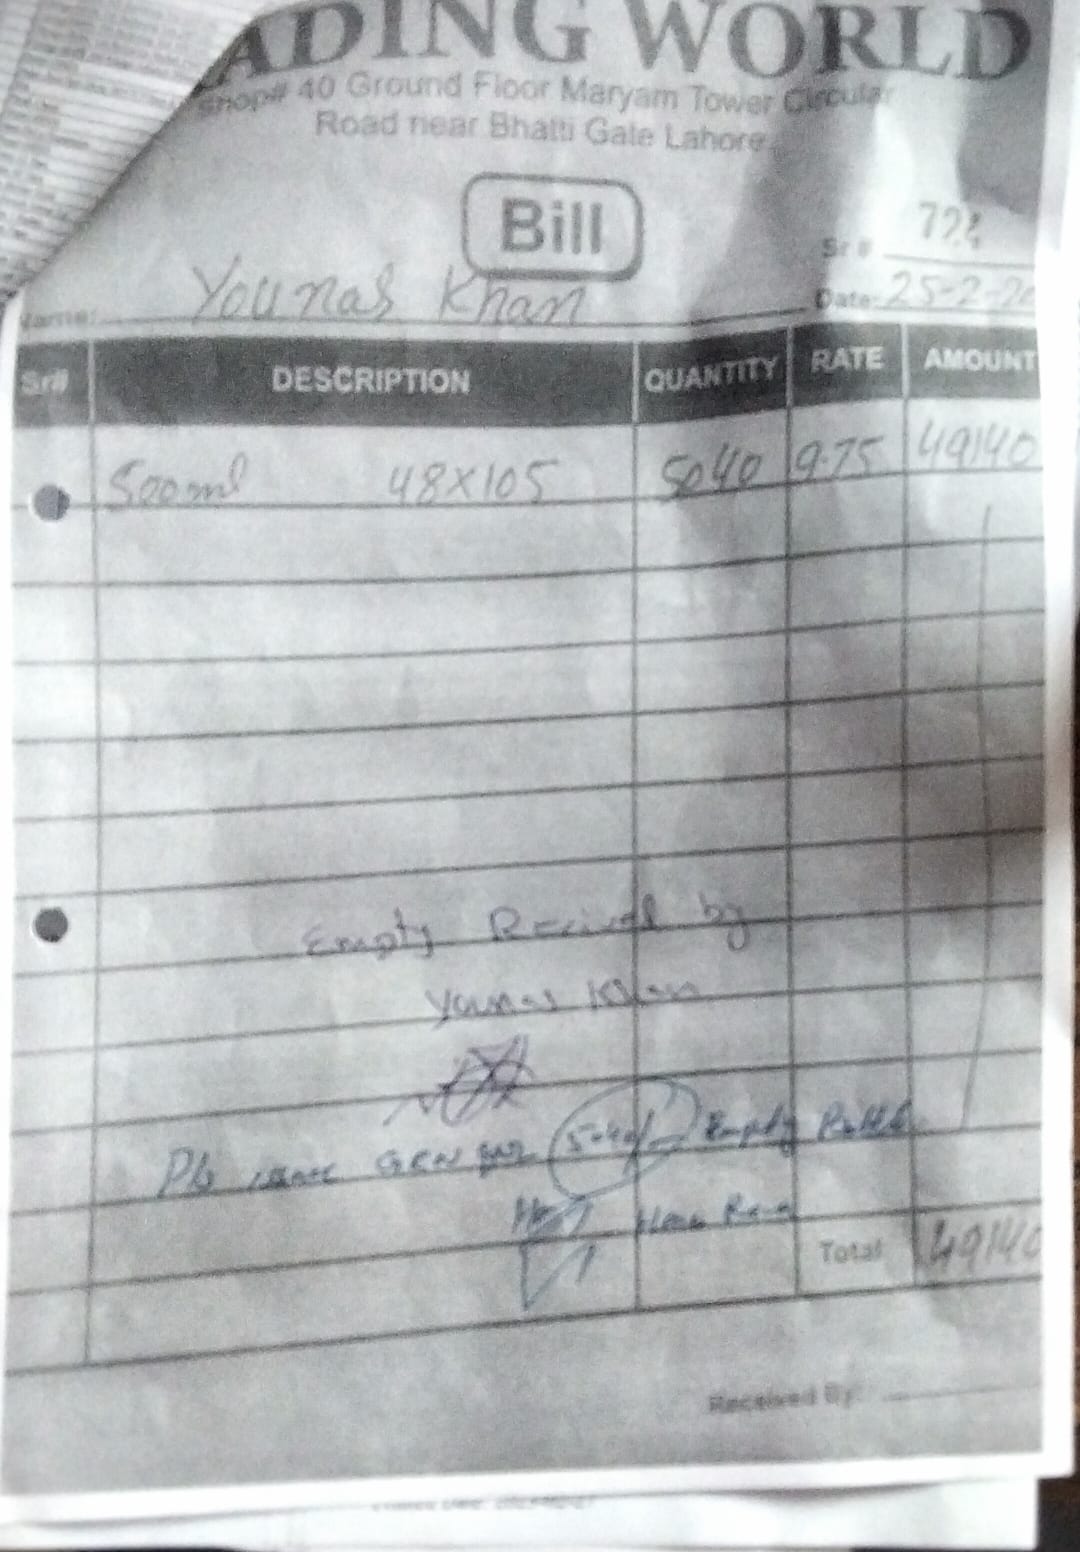 ADING WORLD
Shop# 40 Ground Floor Maryam Tower Circular
Road near Bhatti Gate Lahore
Bill
Sr #
Name: Younas Khan Date 25-2-20
Sr# DESCRIPTION QUANTITY RATE AMOUNT
500ml 48X105 5040 9.75 49140
Empty Recived by
Younas Khan
GRN 5040/ Empty Bottle
Total 49140
Received By: